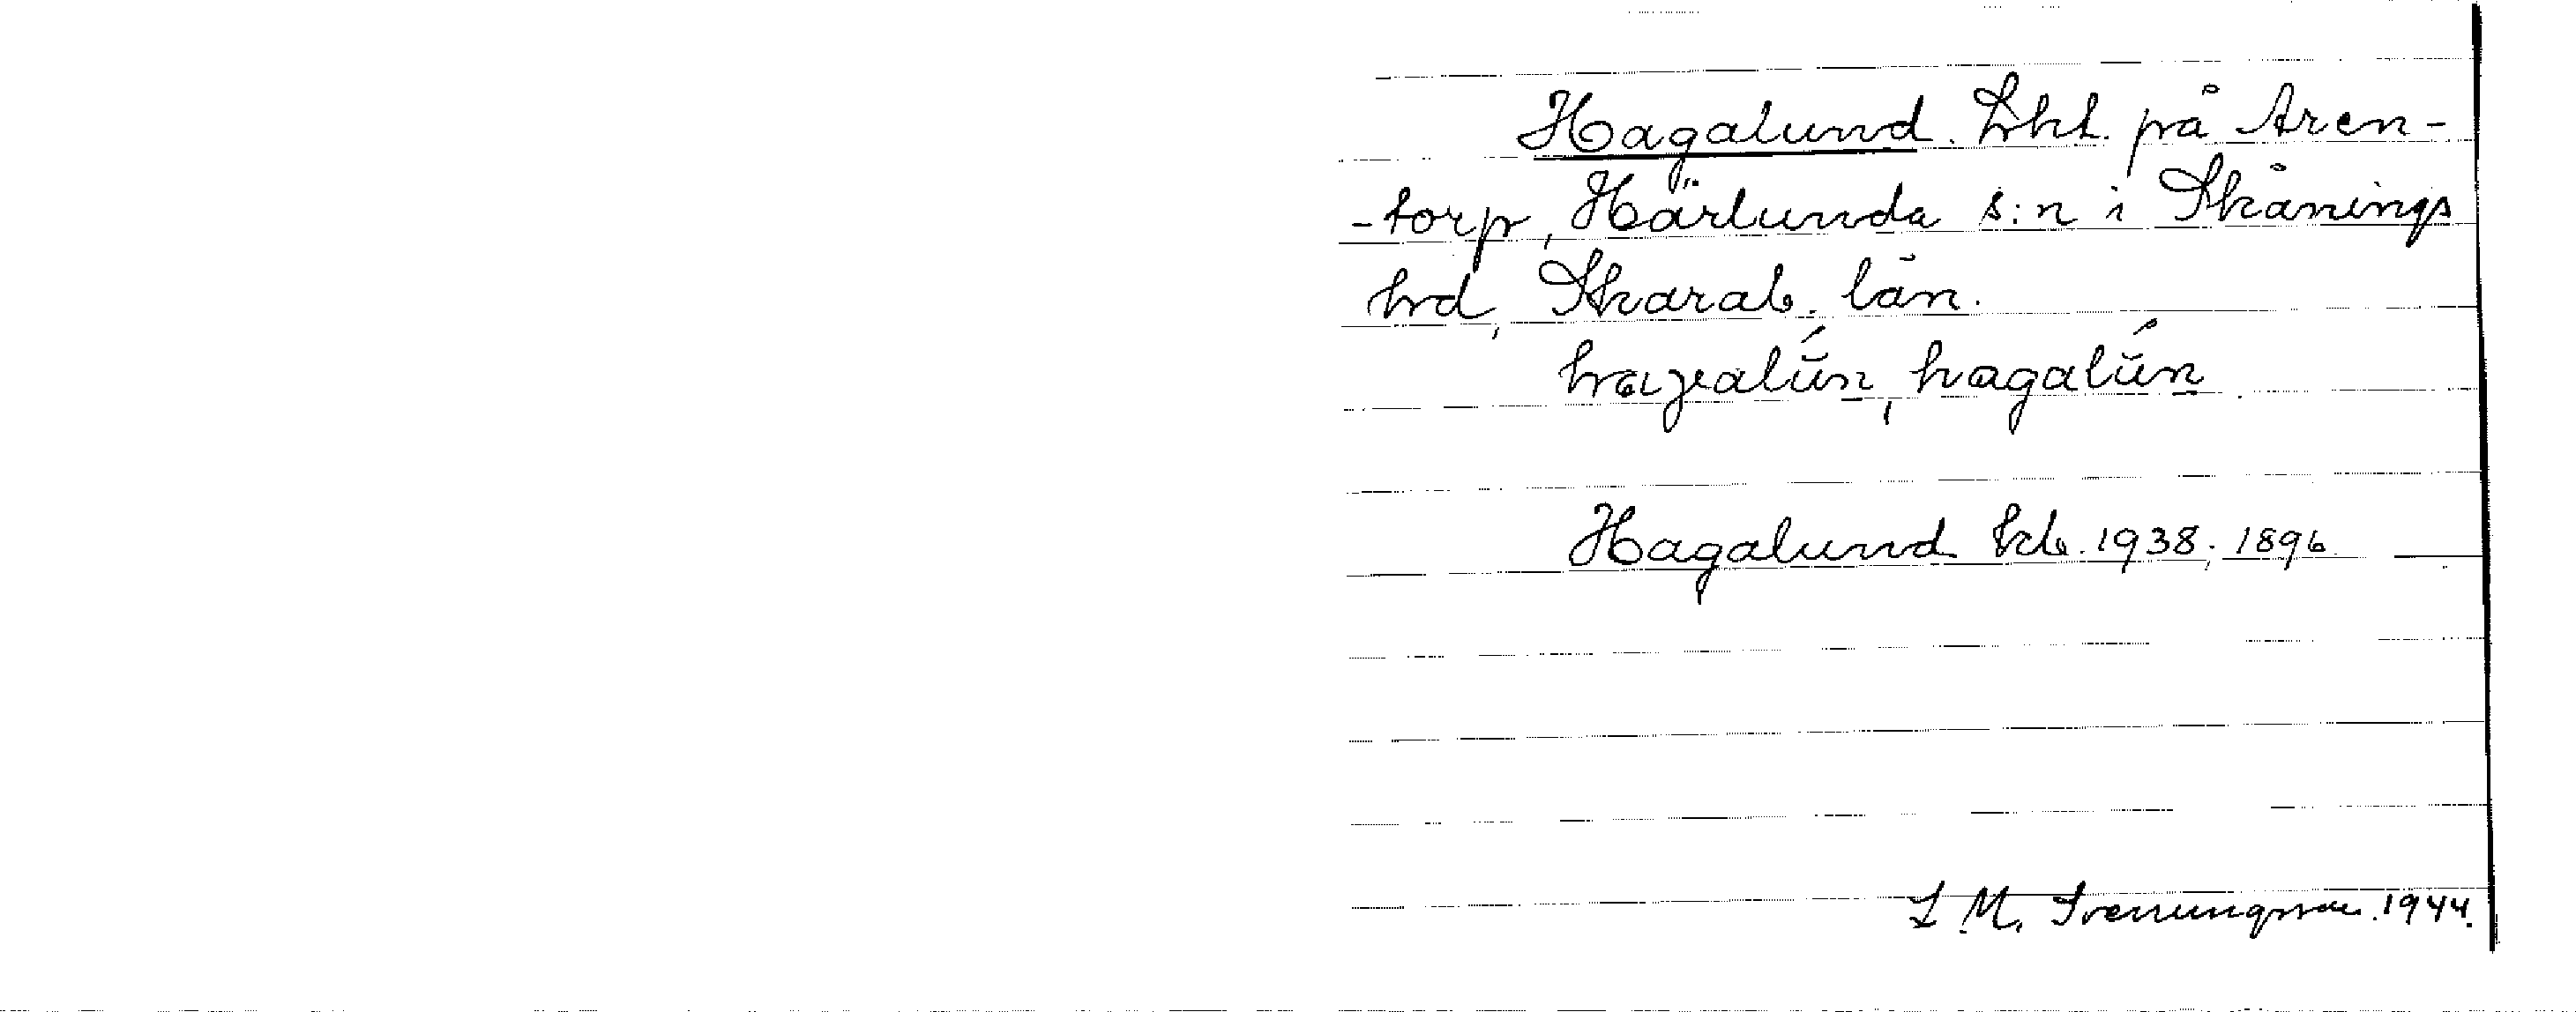 Hagalund. Lht. på Aren-
-torp, Härlunda s:n i Skånings
hd, Skarab. län.
hagalún, hagalún
Hagalund 1938; 1896.
S. M. Svenungsson. 1944.